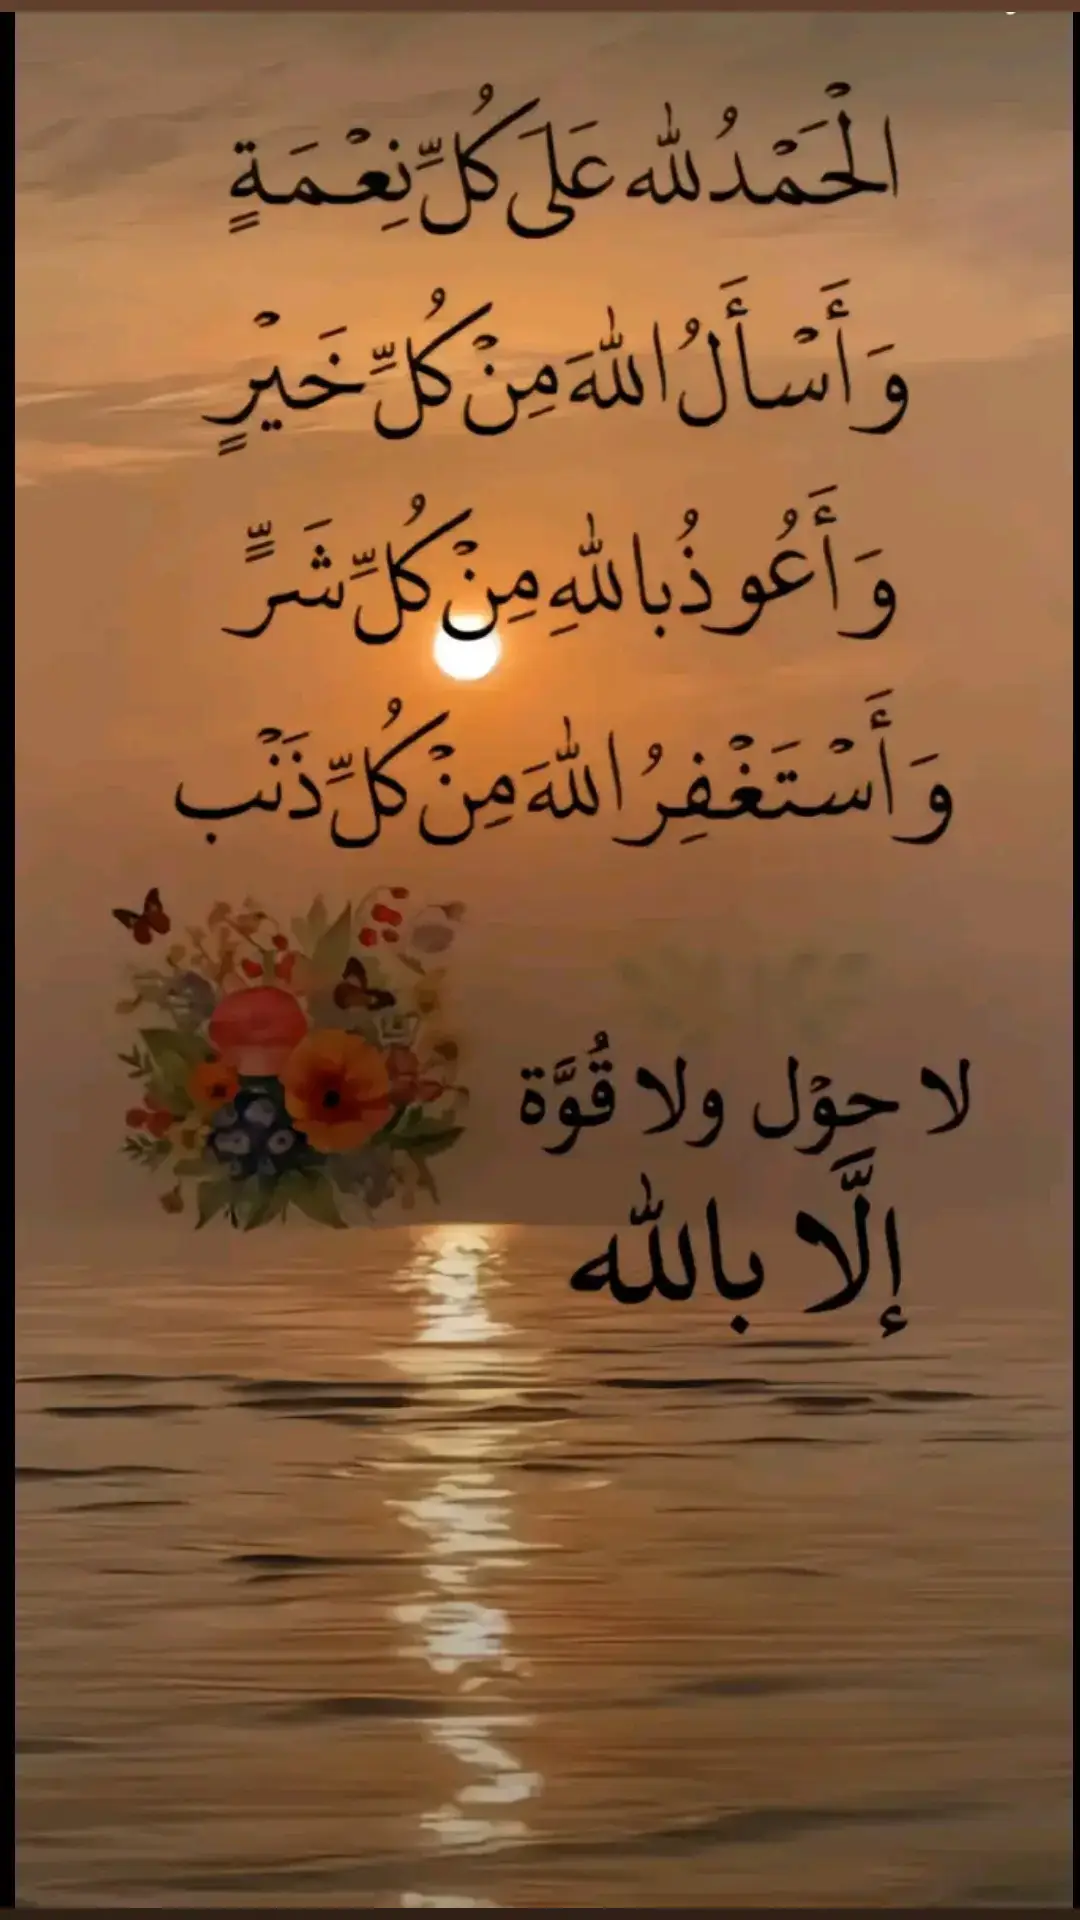 الْحَمْدُ لله عَلَى كُلِّ نِعْمَةٍ
وَأَسْأَلُ اللهَ مِنْ كُلِّ خَيْرٍ
وَأَعُوذُ بِاللهِ مِنْ كُلِّ شَرٍّ
وَأَسْتَغْفِرُ اللهَ مِنْ كُلِّ ذَنْب
لا حوْل ولا قُوَّة
إلَّا بالله